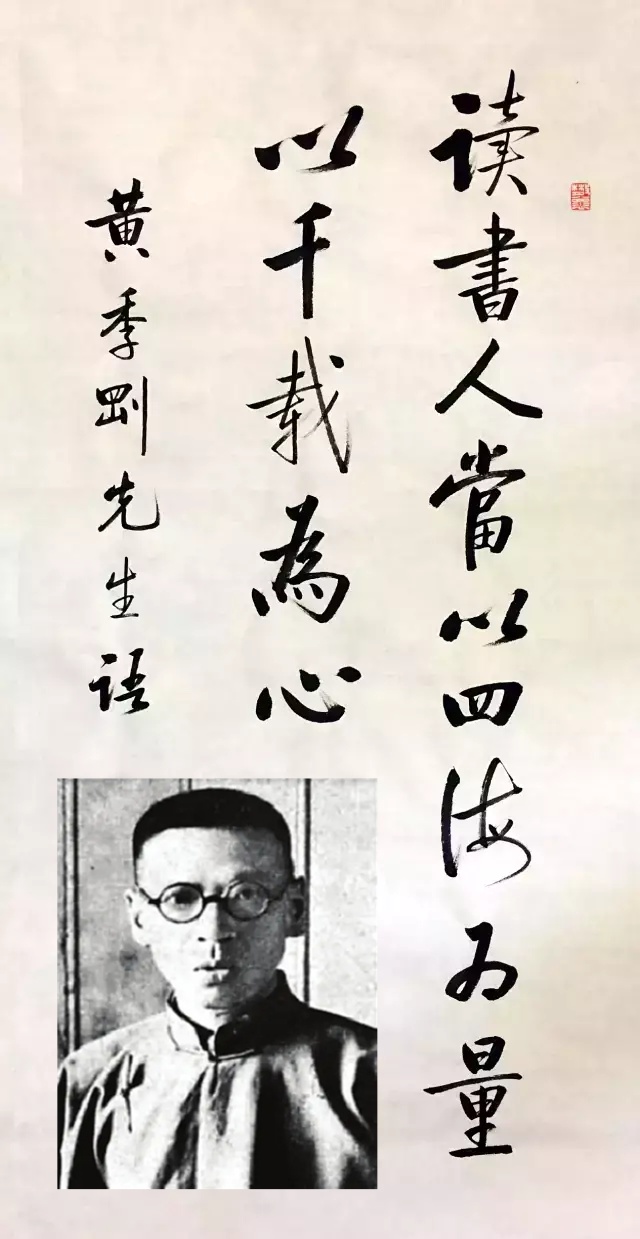 读書人當以四海为量
以千载為心
黄季剛先生语